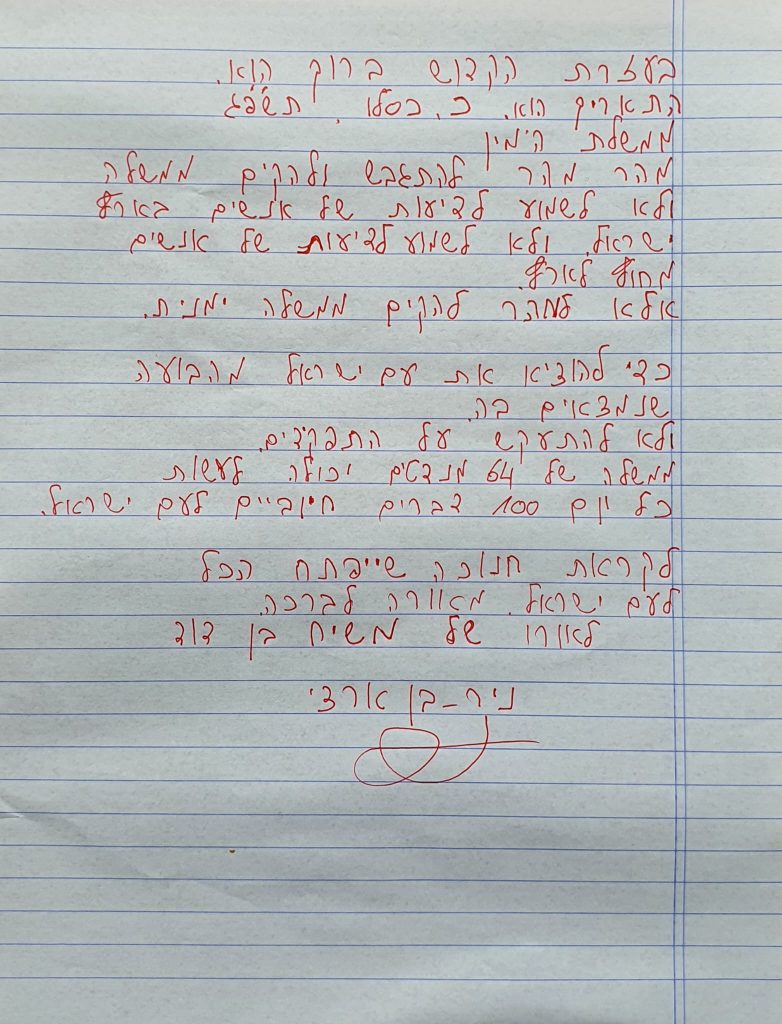 בעזרת הקדוש ברוך הוא.
התאריך הוא. כ. כסלו. תשפ"ג
ממשלת הימין
מהר מהר להתגבש ולהקים ממשלה
ולא לשמוע לדיעות של אנשים בארץ
ישראל. ולא לשמוע לדיעות של אנשים
מחוץ לארץ.
אלא למהר להקים ממשלה ימנית.
כדי להוציא את עם ישראל מהבועה
שנמצאים בה.
ולא להתעקש על התפקידים.
ממשלה של 64 מנדטים יכולה לעשות
כל יום 100 דברים חיובייים לעם ישראל.
לקראת חנוכה שייפתח הכל
לעם ישראל. מאוורה לברכה.
לאוורו של משיח בן דוד
ניר-בן ארצי